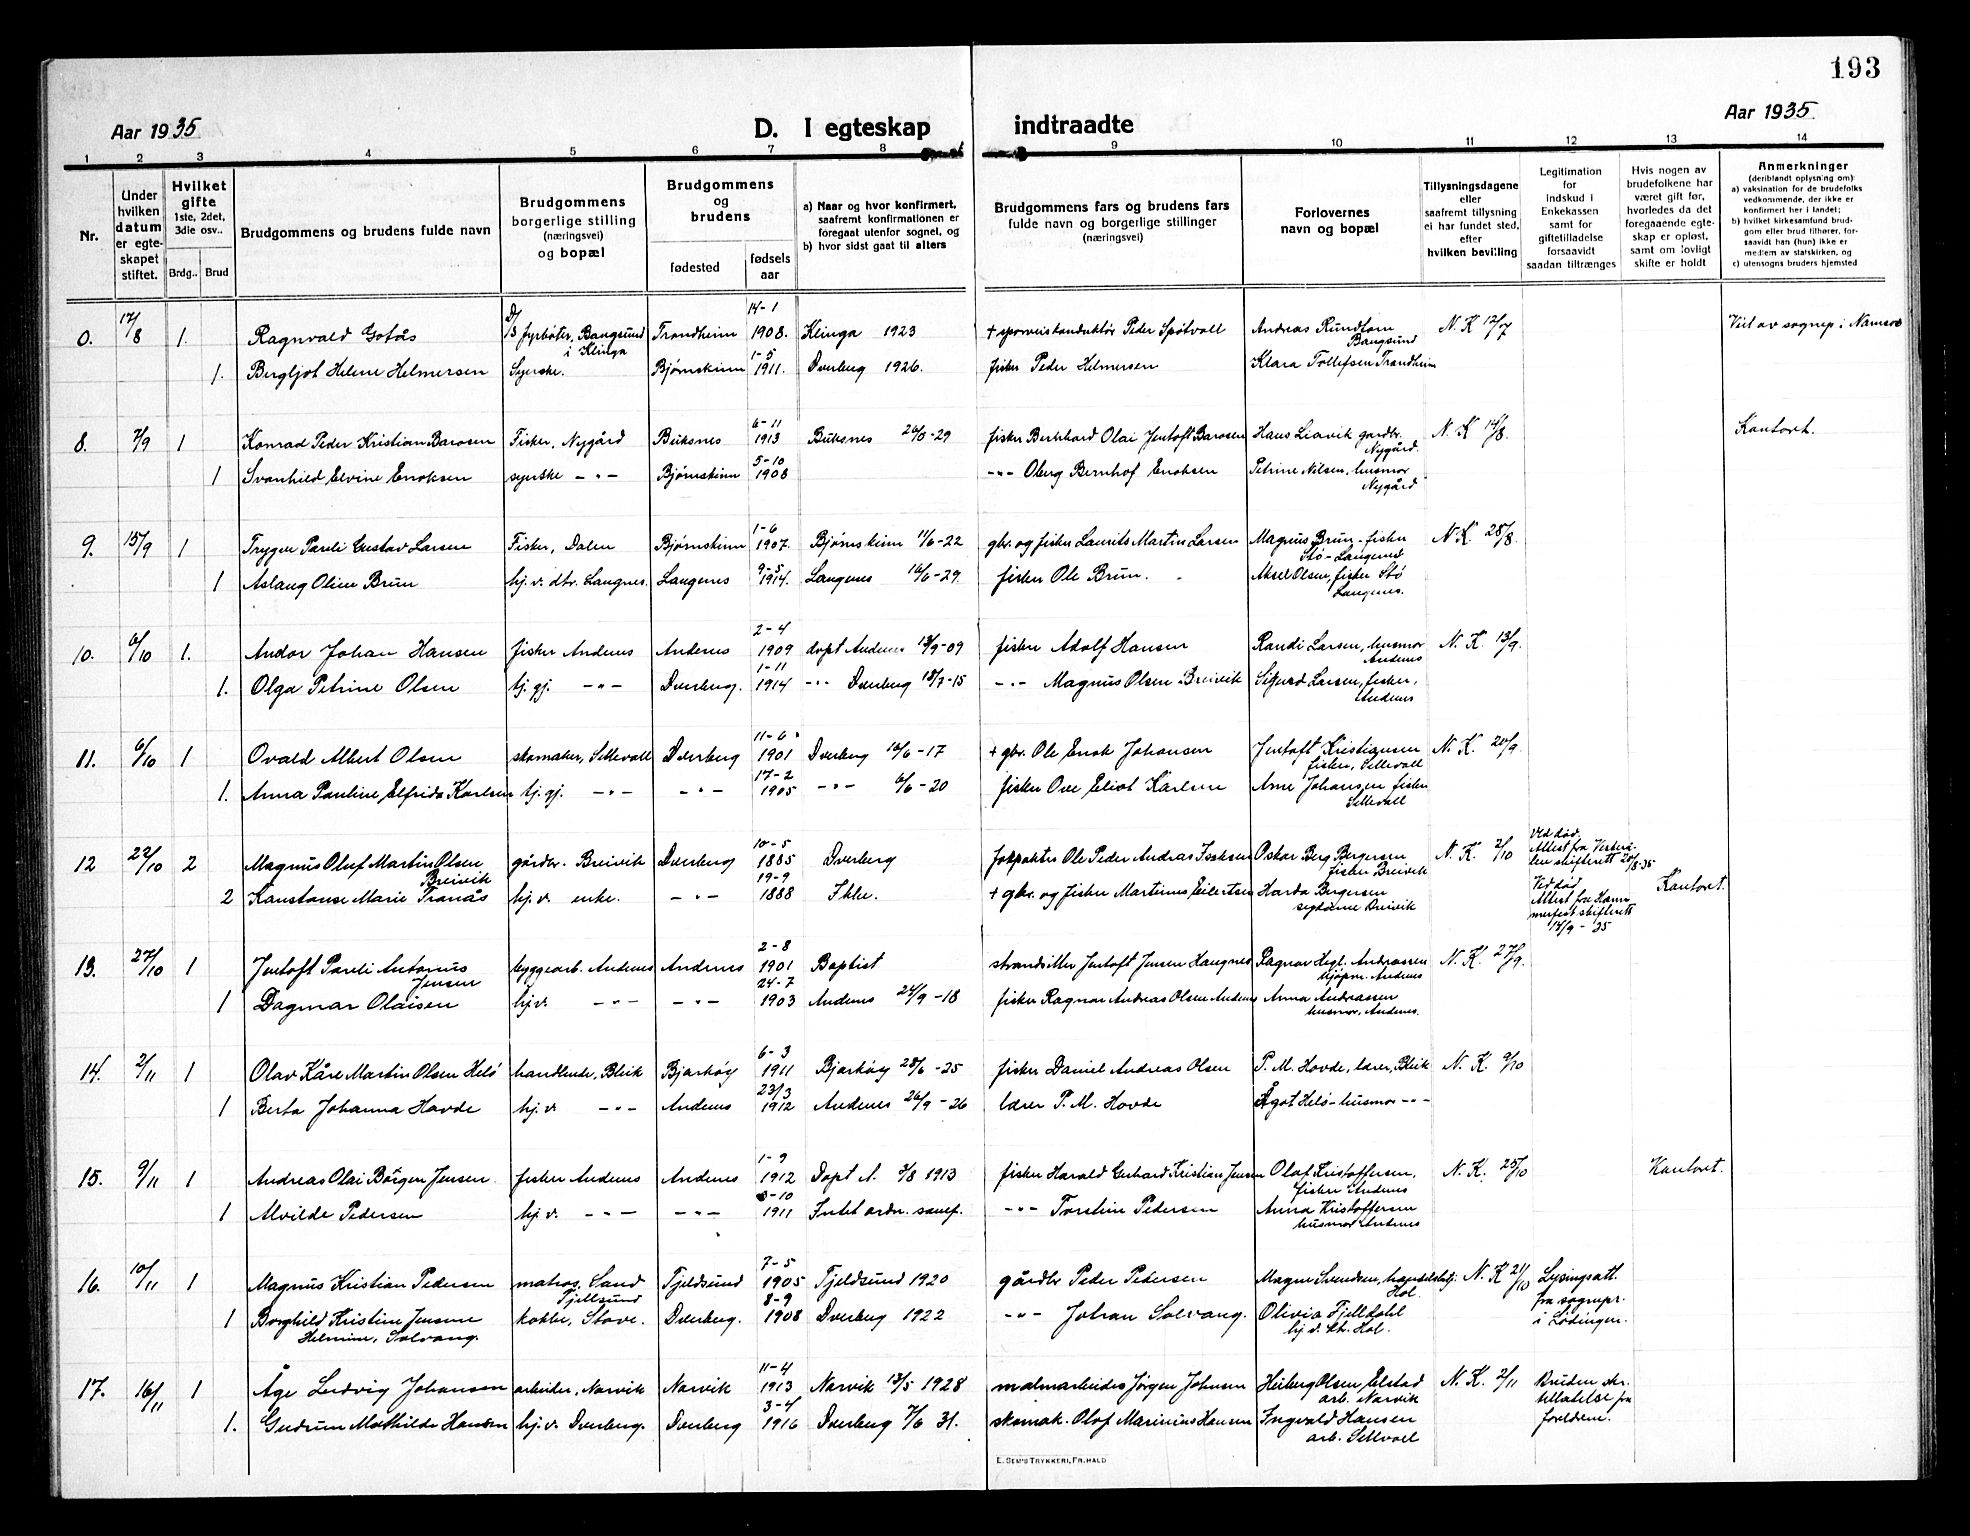 193
Aar 1935
D. I egteskap indtraadte
Aar 1935
1 2 3 4 5 6 7 8 9 10 11 12 13 14
Nr.
Under hvilken datum er egteskapet stiftet.
Hvilket gifte 1ste, 2det, 3die osv..
Brdg.. Brud
Brudgommens og brudens fulde navn
Brudgommens borgerlige stilling (næringsvei) og bopæl
Brudgommens og brudens
fødested
fødselsaar
a) Naar og hvor konfirmert, saafremt konfirmationen er foregaat utenfor sognet, og
b) hvor sidst gaat til alters
Brudgommens fars og brudens fars fulde navn og borgerlige stillinger (næringsvei)
Forlovernes navn og bopæl
Tillysningsdagene eller saafremt tillysning ei har fundet sted, efter hvilken bevilling
Legitimation for Indskud i Enkekassen samt for giftetilladelse forsaavidt saadan tiltrænges
Hvis nogen av brudefolkene har været gift før, hvorledes da det foregaaende egteskap er opløst, samt om lovligt skifte er holdt
Anmerkninger (deriblandt oplysning om):
a) vaksination for de brudefolks vedkommende, der ikke er konfirmert her i landet;
b) hvilket kirkesamfund brudgom eller brud tilhører, forsaavidt han (hun) ikke er medlem av statskirken, og
c) utensogns bruders hjemsted
0. 17/8 1. Ragnvald Gotås fyrbøter, Bangsund i Klinga Trondheim 14-1 1908. Klinga 1923 + sporveiskonduktør Peder Spøtvoll Andreas Rundtom Bangsund N. K 12/7 Viet av sognep. i Namsos
1. Bergljot Helene Helmersen Syerske. Bjørnskinn 1-5 1911. Dverberg 1926. fisker Peder Helmersen Klara Tollefsen Trondheim
8. 7/9 1 Konrad Peder Kristian Barosen Fisker, Nygård Buksnes 6-11 1913 Buksnes 26/6-29 fisker Berkhard Olai Jentoft Barosen Hans Liavik gardbr. Nygård. N. K 14/8 Kontoret.
1 Svanhild Elvine Enoksen syerske -"- Bjørnskinn 5-10 1908 -"- Oberg Bernhof Enoksen Petrine Nilsen, husmor Nygård
9. 15/9 1 Trygve Pareli Gustav Larsen Fisker, Dalen Bjørnskinn 1-6 1907. Bjørnskinn 11/6-22 gbr. og fisker Laurits Martin Larsen Magnus Brun - fisker Stø-Langenes N. K. 28/8.
1 Aslaug Oline Brun hj. v. dtr. Langnes. Langenes 9-5 1914. Langenes 16/6-29. fisker Ole Brun. Aksel Olsen, fisker Stø Langenes.
10. 6/10 1. Andor Johan Hansen fisker Andenes Andenes 2-4 1909 døpt Andenes 13/9-09 fisker Adolf Hansen Randi Larsen, husmor Andenes N. K. 13/9.
1. Olga Petrine Olsen tj. gj. -"- Dverberg. 1-11 1914 -"- Dverberg 18/7-15 -"- Magnus Olsen Breivik Sigurd Larsen, fisker, Andenes
11. 6/10 1 Ovald Albert Olsen skomaker, Settevoll Dverberg 11-6 1901 Dverberg 16/6-17 + gbr. Ole Enok Johansen Jentoft Kristiansen fisker, Settevoll N. K. 20/9.
1. Anna Pauline Elfrida Karlsen tj. gj. -"- -"- 17-2 1905 -"- 6/6-20 fisker Ove Eliot Karlsen Arne Johansen fisker Settevoll
12 22/10 2 Magnus Oluf Martin Olsen Breivik gårdbr. Breivik Dverberg 10-5 1885 Dverberg Ole Peder Andreas Isaksen Oskar Berg Bergersen fisker Breivik N. K. 2/10 Ved død. Attest fra Vesterålen skifterett 20/8-35 Kontoret.
2 Konstanse Marie Tranås hj. v. enke. -"- 19-9 1888 Ikke. + gbr. og fisker Martinus Eilertsen Harda Bergersen Breivik Ved død Attest fra Hammerfest skifterett 14/9-35
13. 27/10 1 Jentoft Pareli Antonius Jensen byggearb. Andenes Andenes 2-8 1901 Baptist strandsitter Jentoft Jensen Haugnes Ragnar Hegl. Andreassen kjøpm. Andenes N. K. 27/9.
1 Dagmar Olaisen hj v. -"- -"- 24-7 1903 Andenes 24/9-18 fisker Ragnar Andreas Olsen Andenes Anna Andreassen husmor, Andenes.
14. 2/11 1 Olav Kåre Martin Olsen Helø handlende, Bleik Bjarkøy 6-3 1911 Bjarkøy 28/6-25 fisker Daniel Andreas Olsen P. M. Hovde, lærer, Bleik N. K. 9/10
1 Berta Johanna Hovde hj. v. -"- Andenes 23/3 1912 Andenes 26/9-26 lærer P. M. Hovde Ågot Helø-husmor -"-
15. 9/11 1 Andreas Olai Børgen Jensen fisker Andenes Andenes 1-9 1912 Døpt A. 3/8 1913 fisker Harald Gerhard Kristian Jensen Olaf Kristoffersen, fisker Andenes N. K. 25/10 Kontoret.
1 Alvilde Pedersen hj. v. -"- -"- 8-10 1911 Intet ordn. samf. -"- Torstein Pedersen Anna Kristoffersen husmor Andenes
16. 10/11 1 Magnus Kristian Pedersen matros, Sand Tjeldsund Tjeldsund 7-5 1905 Tjeldsund 1920 gårdbr Peder Pedersen Magne Svendsen, handelsbetj. Hol. N. K 21/10 Lysingsatt. fra sognepr. i Lødingen.
1 Borghild Kristine Jensine Helmine, Solvang. kokke, Stave. Dverberg. 8-9 1908 Dverberg 1922 -"- Johan Solvang. Olivia Fjelldahl hj. v. Hol.
17. 16/11 1 Åge Ludvig Johansen arbeider, Narvik Narvik 11-4 1913 Narvik 13/5 1928 malmarbeider Jørgen Johnsen Heiberg Olsen, Elstad arb. Narvik N. K. 2/11 Bruden skr. tillatelse fra foreldrene.
1. Gudrun Mathilde Hansen hj. v. Dverberg. Dverberg 3-4 1916 Dverberg 7/6 31. skomak. Olof Marinius Hansen Ingvald Hansen arb. Settvoll
E. SEM'S TRYKKERI, FR.HALD